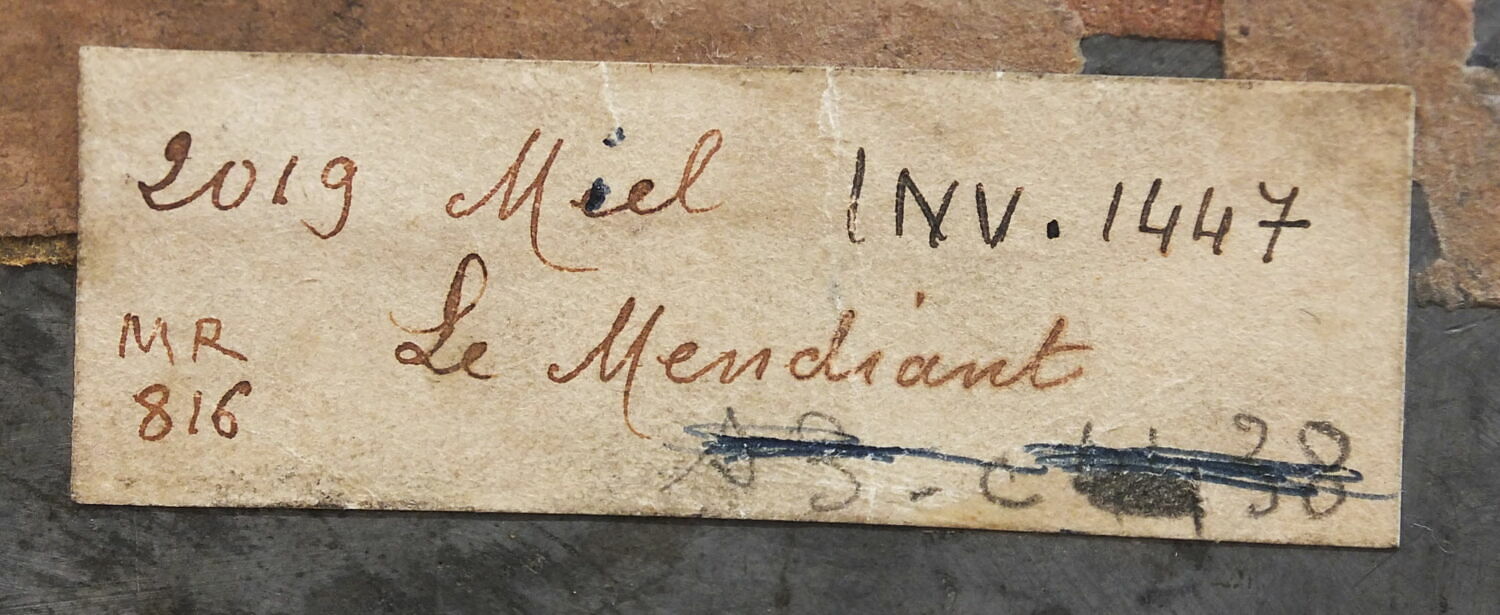 2019 Miel INV. 1447
MR Le Mendiant
816